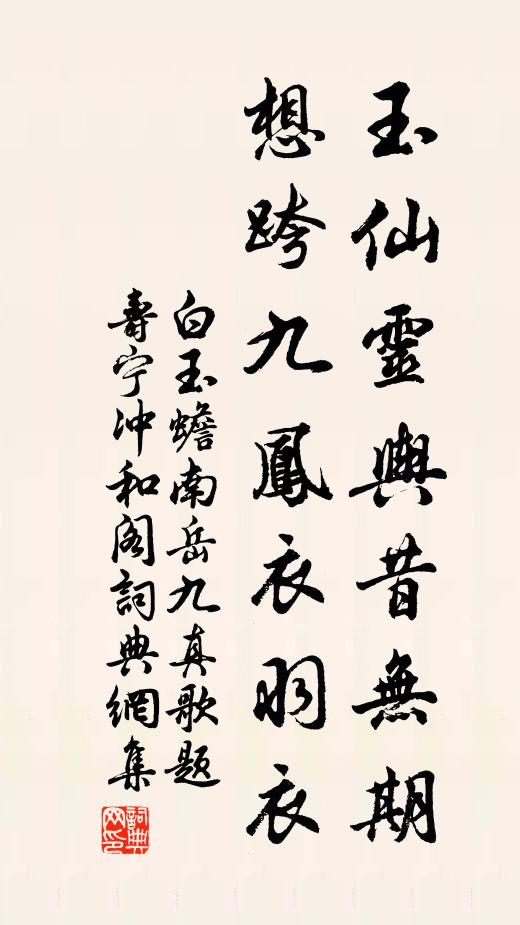 玉仙靈輿昔無期
想跨九鳳衣羽衣
白玉蟾南岳九真歌題
壽宁冲和阁詞典網集
詞典
网印